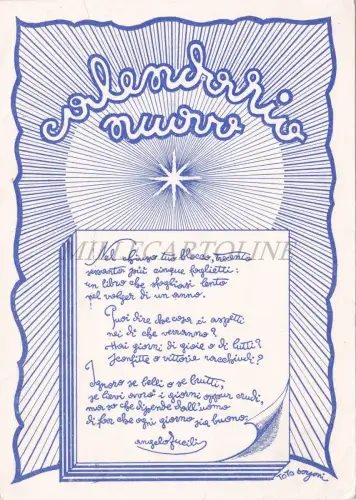 calendario
nuovo
MILLECARTOLINE
Nel chiuso tuo blocco, trecento
sessanta più cinque foglietti:
un libro che sfogliasi lento
nel volger di un anno.
Puoi dire che cosa ci aspetti
nei dì che verranno?
Hai giorni di gioie o di lutti?
Sconfitte o vittorie racchiudi?
Ignoro se belli o se brutti,
se lievi avrò i giorni oppur crudi,
ma so che dipende dall'uomo
di far che ogni giorno sia buono.
angelo fucili
toto borgoni